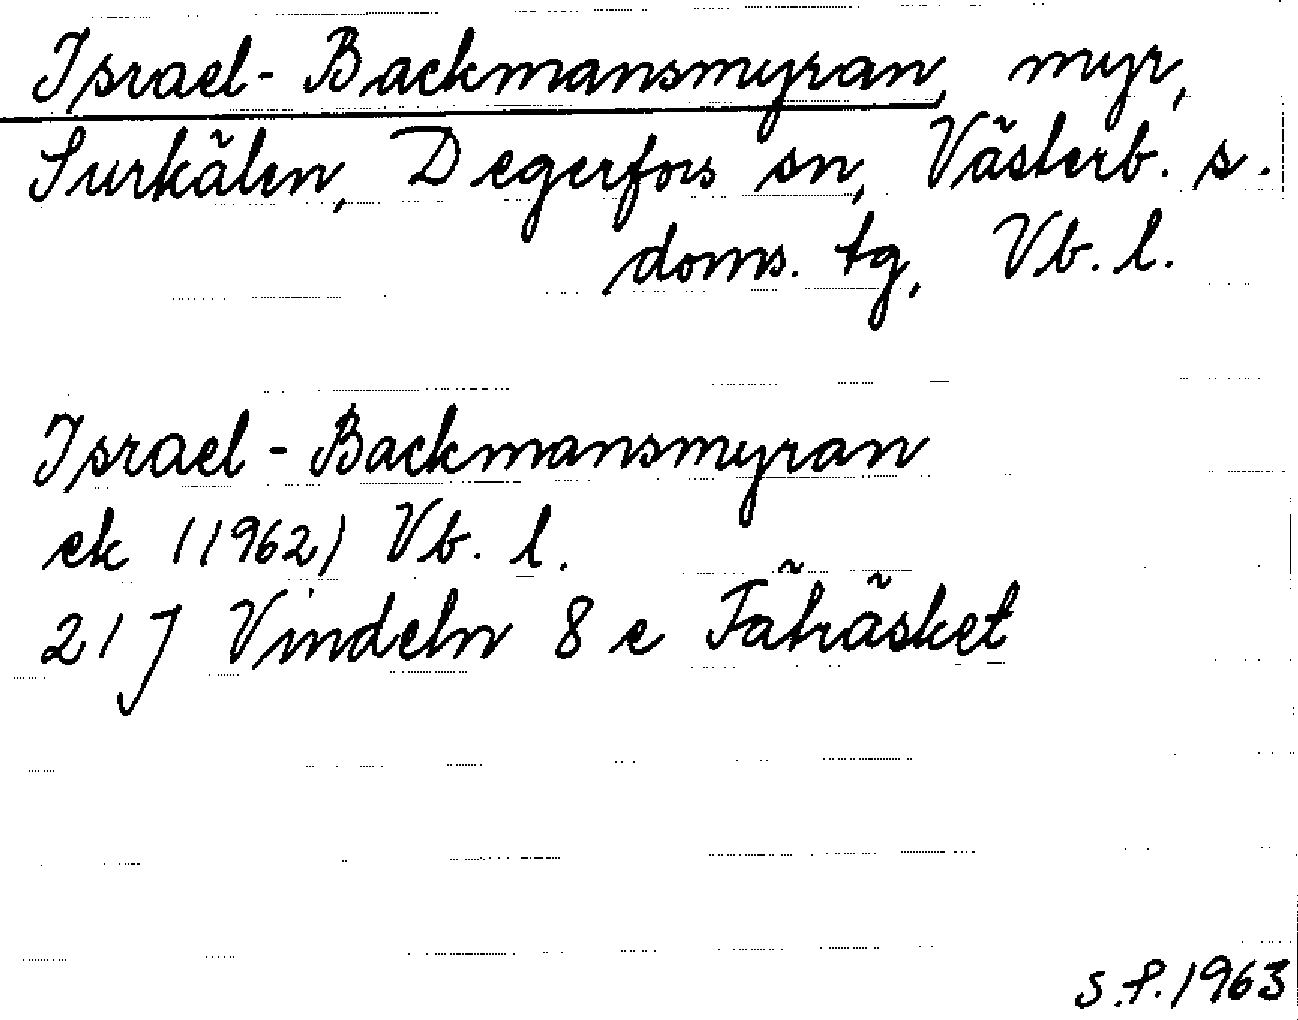 Israel-Backmansmyran, myr,
Surkälen, Degerfors sn, Västerb. s.
doms. tg, Vb. l.
Israel-Backmansmyran
ek (1962) Vb. l.
21 J Vindeln 8 e Fäträsket
S.F. 1963